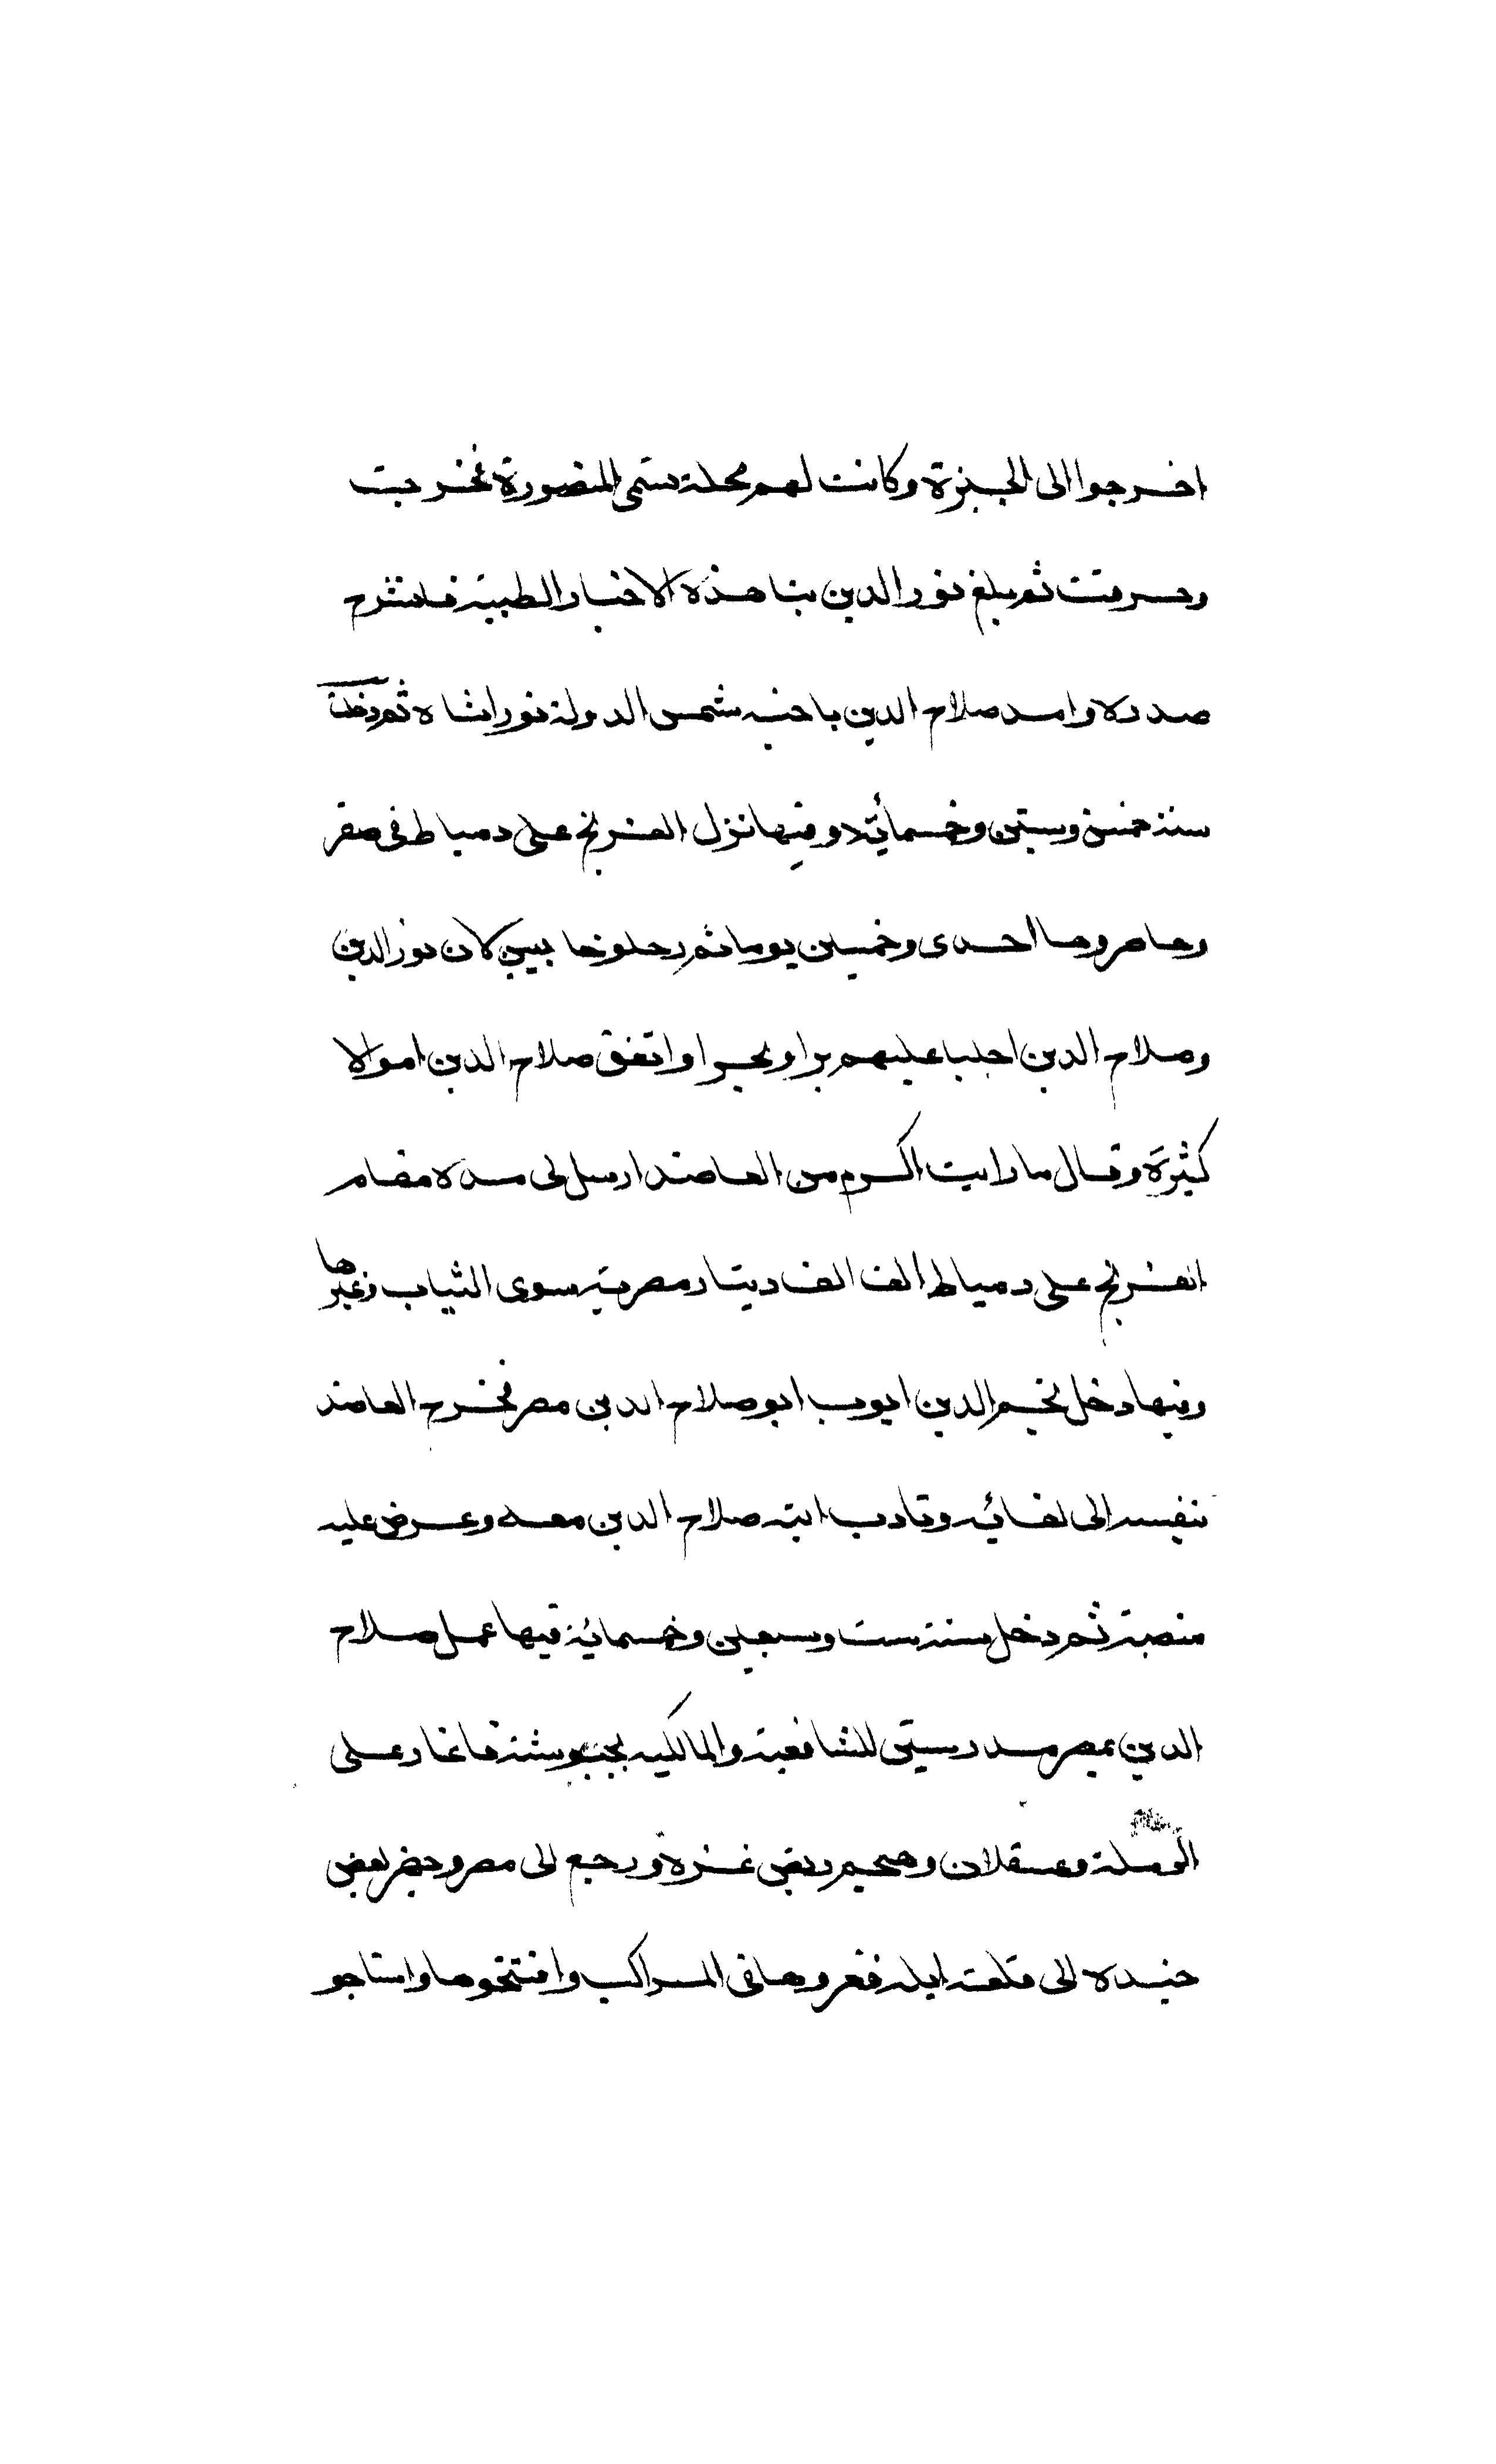 اخرجوا الى الجيزة وكانت لهم محلة تسمى المنصورة فخربت
وحرقت ثم بلغ نور الدين بنا هذه الاخبار الطيبة فانشرح
صدره وامد صلاح الدين باخيه شمس الدولة نورانشاه ثم دخلت
سنة خمس وستين وخمسمائة وفيها نزل الفرنج على دمياط فى صفر
وحاصروها احدى وخمسين يوما ثم رحلوا خا لان نور الدين
وصلاح الدين اجلبا عليهم برا وبحرا واتفق صلاح الدين اموالا
كثيرة وقال ما رايت اكرم من العاضد ارسل لى مدة مقام
الفرنج على دمياط الف الف دينار مصرية سوى الثياب وغيرها
وفيها دخل نجم الدين ايوب ابو صلاح الدين مصر فخرج العاضد
بنفسه الى لقائه وتادب ابنه صلاح الدين معه وعرض عليه
منصبة ثم دخل سنة ست وسبعين وخمسمائة فيها عمل صلاح
الدين بمصر مدرستين للشافعية والمالكيه فاغار على
الرملة وعسقلان وهجم ربض غزة ورجع الى مصر وجهز بعض
جنده الى قلعة ايله فعروها فى المراكب وافتتحوها واستاجو